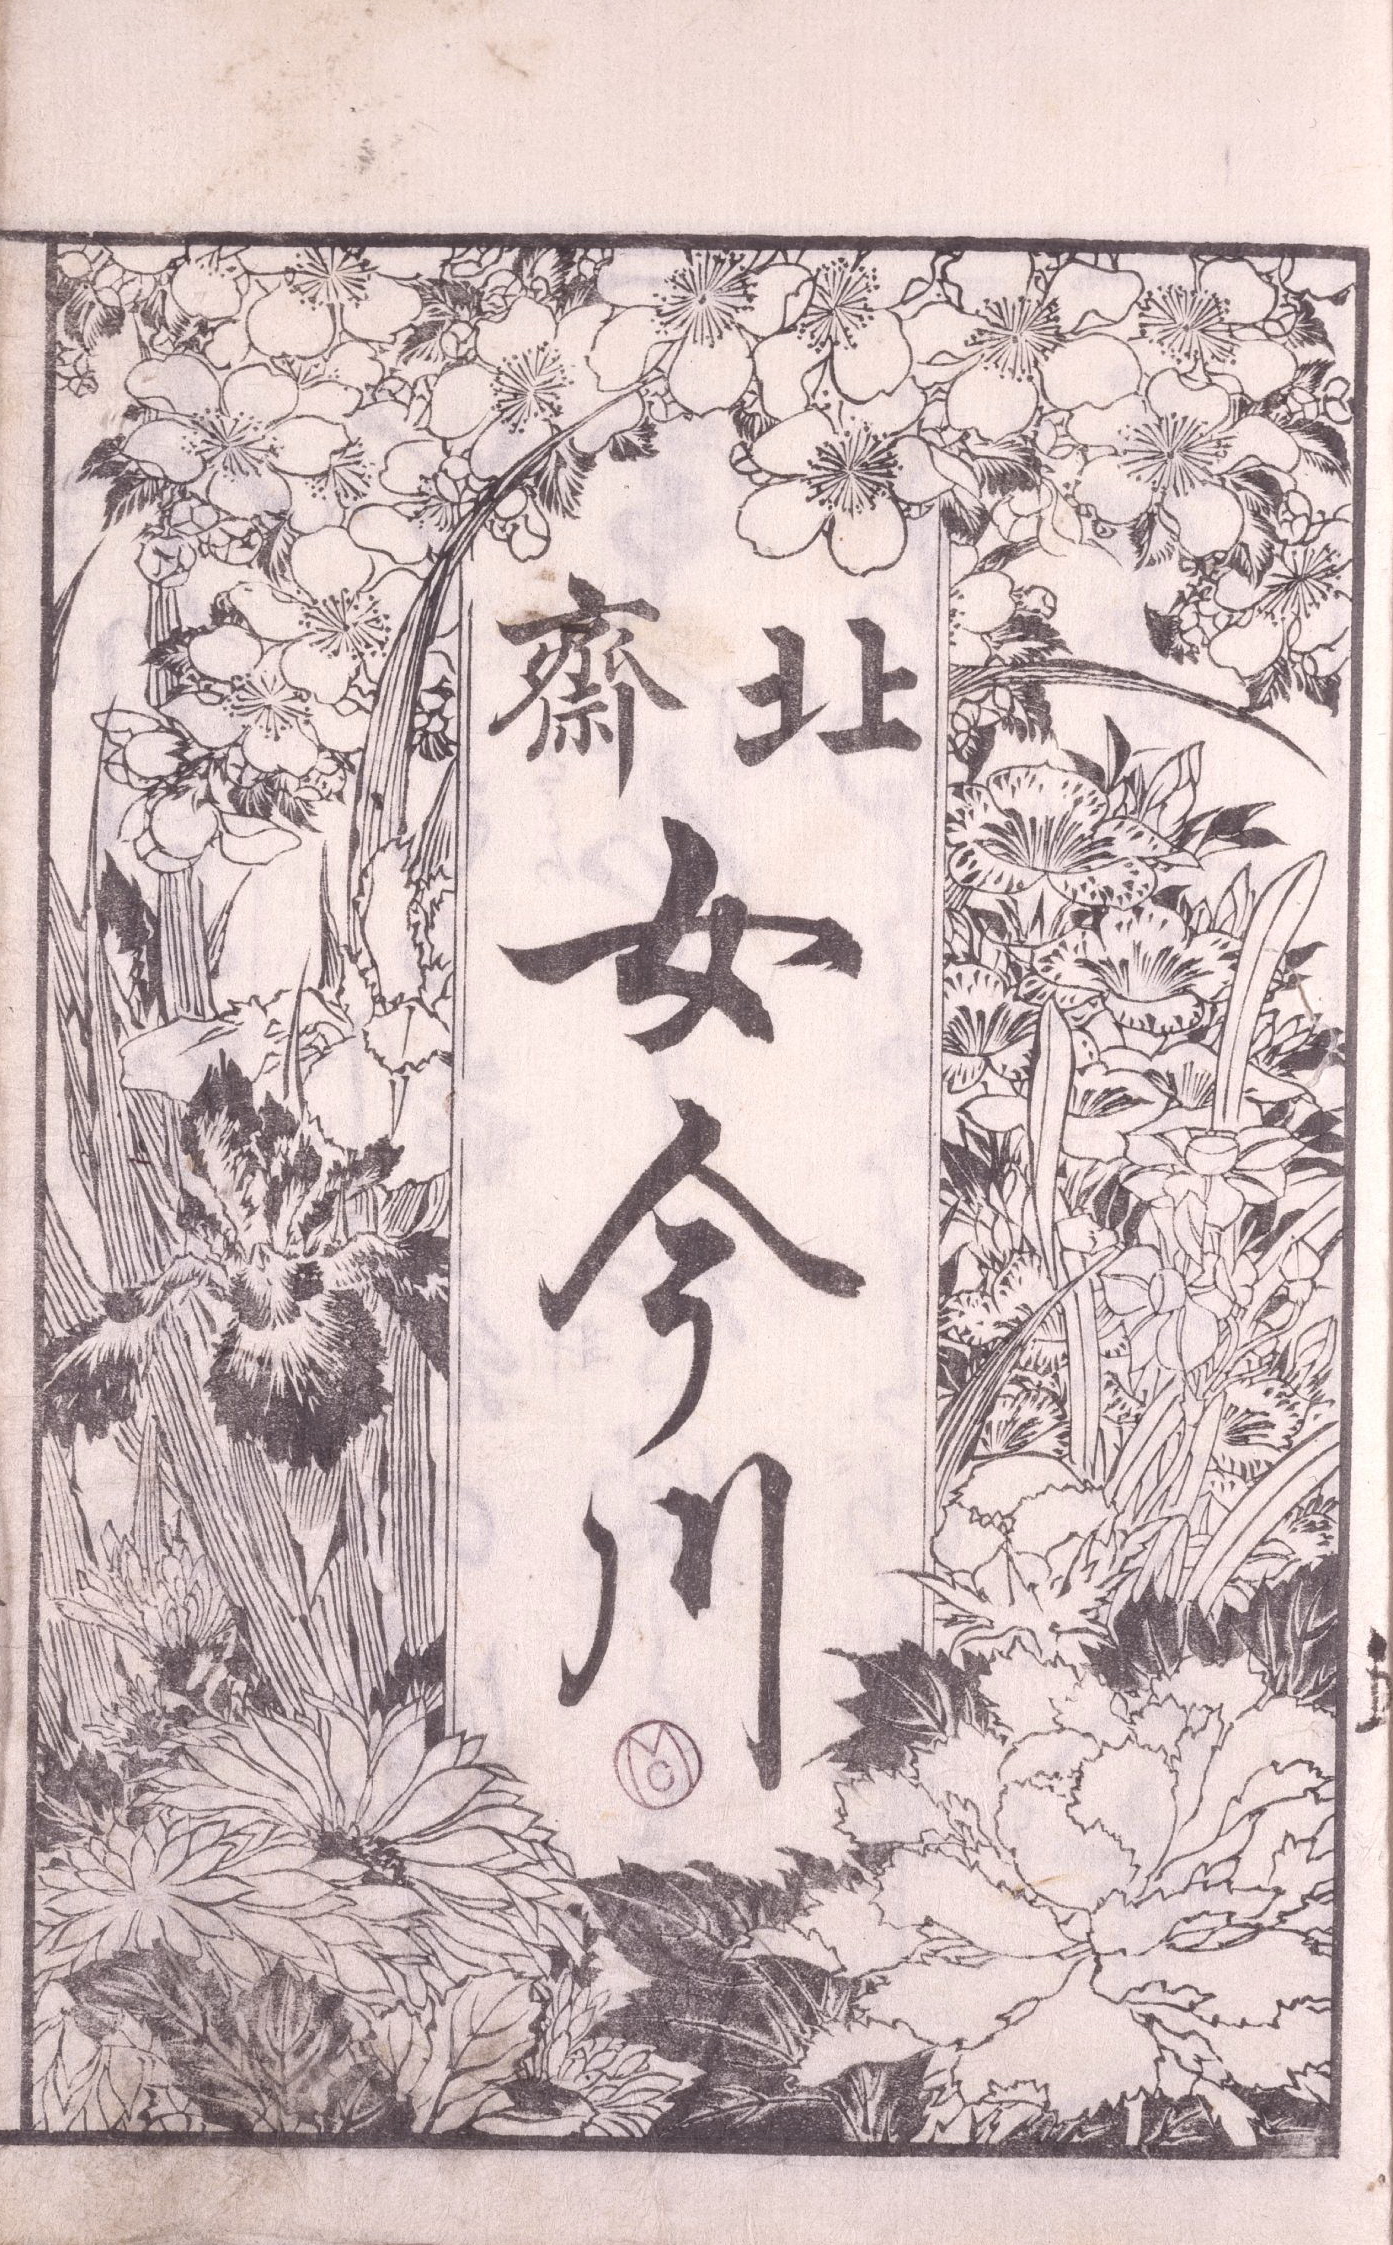 北齋
女今川
MC